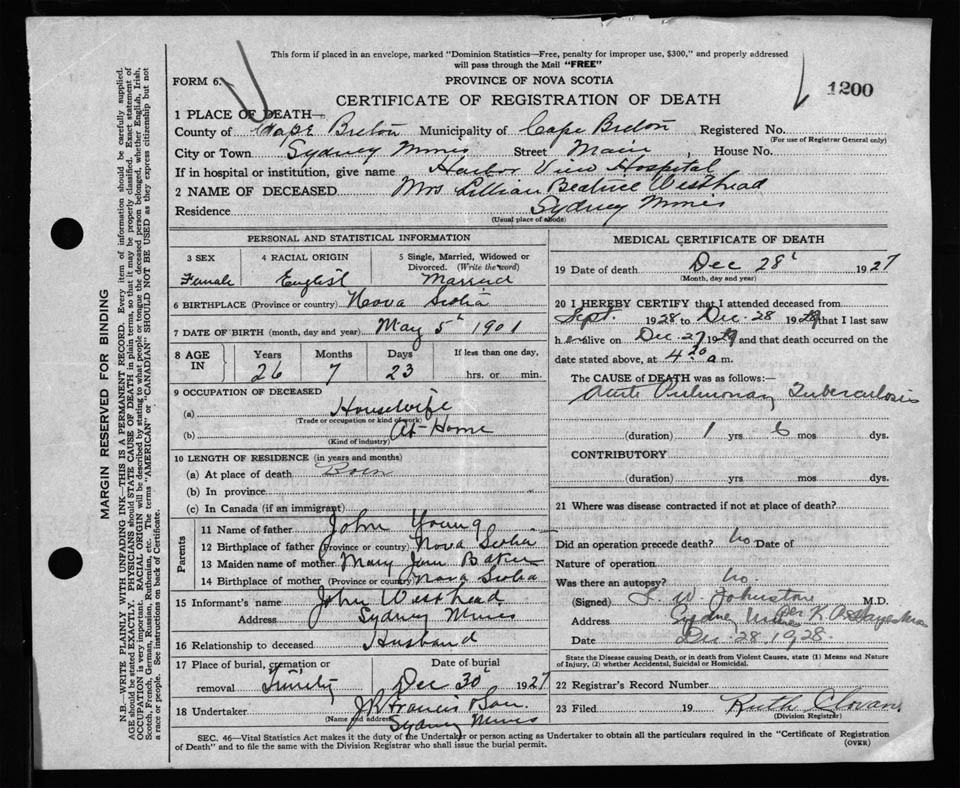 This form if placed in an envelope, marked "Dominion Statistics—Free, penalty for improper use, $300," and properly addressed
will pass through the Mail "FREE"
FORM 6.
PROVINCE OF NOVA SCOTIA
1200
CERTIFICATE OF REGISTRATION OF DEATH
1 PLACE OF DEATH—
County of Cape Breton Municipality of Cape Breton Registered No.
(For use of Registrar General only)
City or Town Sydney Mines Street Main, House No.
If in hospital or institution, give name Harbor View Hospital
2 NAME OF DECEASED Mrs Lillian Beatrice Westhead
Residence Sydney Mines
(Usual place of abode)
PERSONAL AND STATISTICAL INFORMATION
3 SEX 4 RACIAL ORIGIN 5 Single, Married, Widowed or
Divorced. (Write the word)
Female English Married
6 BIRTHPLACE (Province or country) Nova Scotia
7 DATE OF BIRTH (month, day and year) May 5th 1901
8 AGE IN Years Months Days If less than one day,
26 7 23 hrs. or min.
9 OCCUPATION OF DECEASED
(a) Housewife
(Trade or occupation or kind of work)
(b) At Home
(Kind of industry)
10 LENGTH OF RESIDENCE (in years and months)
(a) At place of death Born
(b) In province
(c) In Canada (if an immigrant)
Parents
11 Name of father John Young
12 Birthplace of father (Province or country) Nova Scotia
13 Maiden name of mother Mary Jane Baker
14 Birthplace of mother (Province or country) Nova Scotia
15 Informant's name John Westhead
Address Sydney Mines
16 Relationship to deceased Husband
17 Place of burial, cremation or Date of burial
removal Trinity Dec 30th 1927
18 Undertaker J R Francis
(Name and address)
Sydney Mines
MEDICAL CERTIFICATE OF DEATH
19 Date of death Dec 28th 1927
(Month, day and year)
20 I HEREBY CERTIFY that I attended deceased from
Sept. 1928 to Dec. 28 192 that I last saw
her alive on Dec 27 192 and that death occurred on the
date stated above, at 4 20 a m.
The CAUSE of DEATH was as follows:
Acute Pulmonary Tuberculosis
(duration) 1 yrs 6 mos dys.
CONTRIBUTORY
(duration) yrs. mos. dys.
21 Where was disease contracted if not at place of death?
Did an operation precede death? No Date of
Nature of operation
Was there an autopsy? No.
(Signed) L. W. Johnstone M.D.
Address Sydney Mines Per K.
Date Dec. 28 1928.
State the Disease causing Death, or in death from Violent Causes, state (1) Means and Nature
of Injury, (2) whether Accidental, Suicidal or Homicidal.
22 Registrar's Record Number
23 Filed 19 Ruth
(Division Registrar)
SEC. 46—Vital Statistics Act makes it the duty of the Undertaker or person acting as Undertaker to obtain all the particulars required in the "Certificate of Registration
of Death" and to file the same with the Division Registrar who shall issue the burial permit.
(OVER)
MARGIN RESERVED FOR BINDING
N.B.—WRITE PLAINLY WITH UNFADING INK—THIS IS A PERMANENT RECORD. Every item of information should be carefully supplied.
AGE should be stated EXACTLY. PHYSICIANS should STATE CAUSE OF DEATH in plain terms, so that it may be properly classified. Exact statement of
OCCUPATION is very important. RACIAL ORIGIN will be described by stating to what people or tongue the deceased person belonged, whether English, Irish,
Scotch, French, German, Russian, Ruthenian, etc. The terms "AMERICAN" or "CANADIAN" SHOULD NOT BE USED as they express citizenship but not
a race or people. See instructions on back of Certificate.